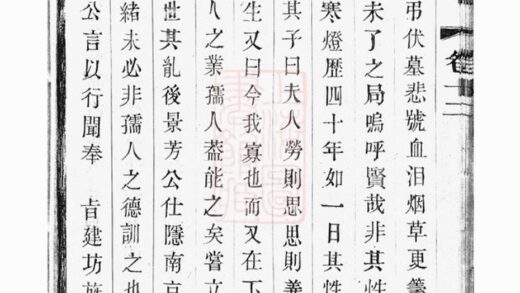 卷
弔伏墓悲號血泪烟草更
未了之局嗚呼賢哉非其性
寒燈歷四十年如一日其性
其子曰夫人勞則思思則義
生又曰今我寡也而又在下
人之業孺人葢能之矣嘗立
世其亂後景芳公仕隱南京
緒未必非孺人之德訓之也
公言以行聞奉 旨建坊旌